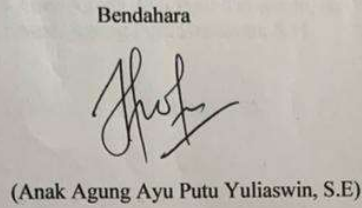 Bendahara
(Anak Agung Ayu Putu Yuliaswin, S.E)